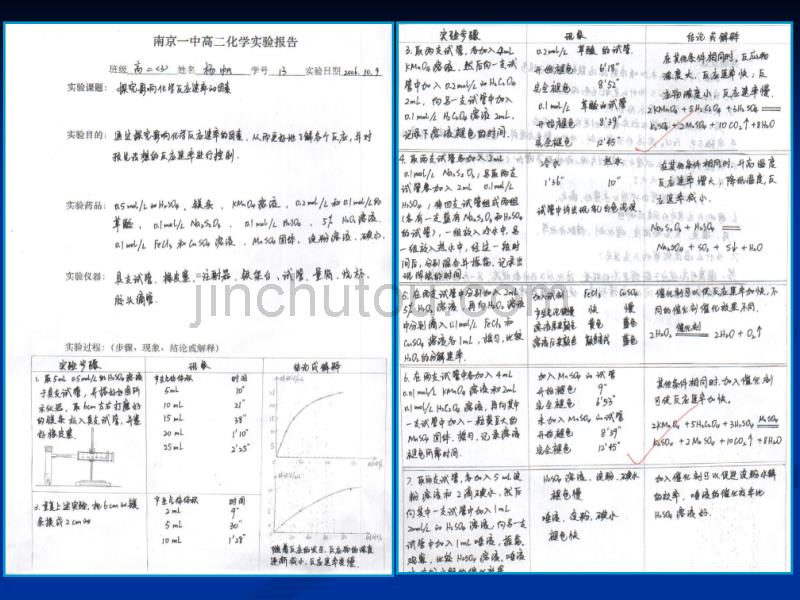 南京一中高二化学实验报告
班级 高二<3> 姓名 杨帆 学号 13 实验日期 2006.10.9
实验课题: 探究影响化学反应速率的因素
实验目的: 通过探究影响化学反应速率的因素,从而更好地了解各个反应,并对
反应的速率进行控制.
实验药品: 0.5mol/L的H₂SO₄、镁条、KMnO₄溶液、0.2mol/L和0.1mol/L的
草酸、0.1mol/L Na₂S₂O₃、0.1mol/L H₂SO₄、5% H₂O₂溶液、
0.1mol/L FeCl₃和CuSO₄溶液、MnSO₄固体、淀粉溶液、碘水
实验仪器: 具支试管、橡皮塞、注射器、铁架台、试管、量筒、烧杯、
胶头滴管
实验过程:(步骤、现象、结论或解释)
实验步骤 现象 结论或解释
1. 取5mL 0.5mol/L的H₂SO₄溶液
于具支试管,
的镁条放入具支试管,并塞
好橡皮塞.
产生气体体积 时间
5 mL 10"
10 mL 21"
15 mL 38"
20 mL 1'10"
25 mL 2'25"
2. 重复上述实验,把6cm的镁
条换成2cm的
产生气体体积 时间
2 mL 9"
5 mL 30"
10 mL 1'28"
随着反应的进行,反应物的浓度
逐渐减小,反应速率变慢.
实验步骤 现象 结论或解释
3. 取两支试管,各加入4mL
KMnO₄溶液,然后向一支试
管中加入0.2mol/L的H₂C₂O₄
2mL,向另一支试管中加入
0.1mol/L H₂C₂O₄溶液2mL,
记录下溶液褪色的时间.
0.2mol/L 草酸的试管
开始褪色 6'18"
完全褪色 8'52"
0.1mol/L 草酸的试管
开始褪色 8'39"
完全褪色 12'45"
在其他条件相同时,反应物
浓度大,反应速率快;反
应物浓度小,反应速率慢.
2KMnO₄+5H₂C₂O₄+3H₂SO₄ ══
K₂SO₄+2MnSO₄+10CO₂↑+8H₂O
4. 取两支试管各加入2mL
0.1mol/L Na₂S₂O₃,另取两支
试管各加入2mL 0.1mol/L
H₂SO₄,将四支试管组成两组
(各有一支盛有Na₂S₂O₃和H₂SO₄
的试管),一组放入冷水中,另
一组放入热水中,经过一段时
间后,分别混合并搅拌,记录出
现浑浊的时间.
冷水 热水
1'36" 10"
试管中均出现乳白色浑浊
在其他条件相同时,升高温度
反应速率增大,降低温度,反
应速率减小.
Na₂S₂O₃+H₂SO₄ ══
Na₂SO₄+SO₂+S↓+H₂O
5. 在两支试管中分别加入2mL
5% H₂O₂溶液,再向H₂O₂溶液
中分别滴入0.1mol/L FeCl₃和
CuSO₄溶液为1mL,摇匀,比较
H₂O₂的分解速率.
加入试剂 FeCl₃ CuSO₄
快 慢
黄色 蓝色
蓝色
催化剂可以使反应速率加快,不
同的催化剂催化效果不同.
2H₂O₂ 催化剂══ 2H₂O+O₂↑
6. 在两支试管中各加入4mL
0.01mol/L KMnO₄溶液和2mL
0.1mol/L H₂C₂O₄溶液,再向其中
一支试管中加入一粒黄豆大的
MnSO₄固体,摇匀,记录溶液
褪色所需时间.
加入MnSO₄的试管
开始褪色 9"
完全褪色 6'53"
未加入MnSO₄的试管
开始褪色 8'39"
完全褪色 12'45"
其他条件相同时,加入催化剂
可使反应速率加快.
2KMnO₄+5H₂C₂O₄+3H₂SO₄ MnSO₄══
K₂SO₄+2MnSO₄+10CO₂↑+8H₂O
7. 取两支试管,各加入5mL淀
粉溶液和2滴碘水,然后
向其中一支试管中加入1mL
2mol/L的H₂SO₄溶液,向另一支
试管中加入1mL唾液,振荡,
观察,比较H₂SO₄溶液、唾液
H₂SO₄溶液、淀粉、碘水
褪色慢
唾液、淀粉、碘水
褪色快
加入催化剂可以促进淀粉水解
的效率,唾液的催化效率比
H₂SO₄溶液好.
jinchutou.com